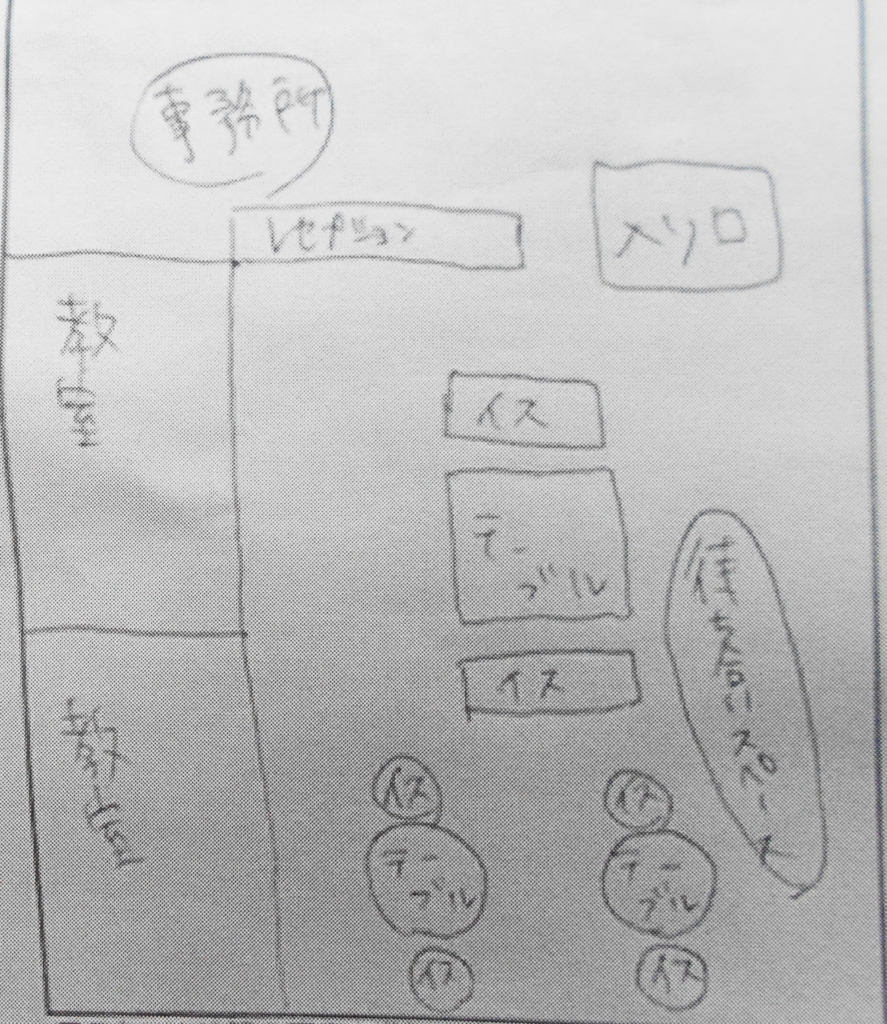 事務所
レセプション
入り口
教室
イス
テー
ブル
イス
待ち合いスペース
教室
イス
テー
ブル
イス
イス
テー
ブル
イス